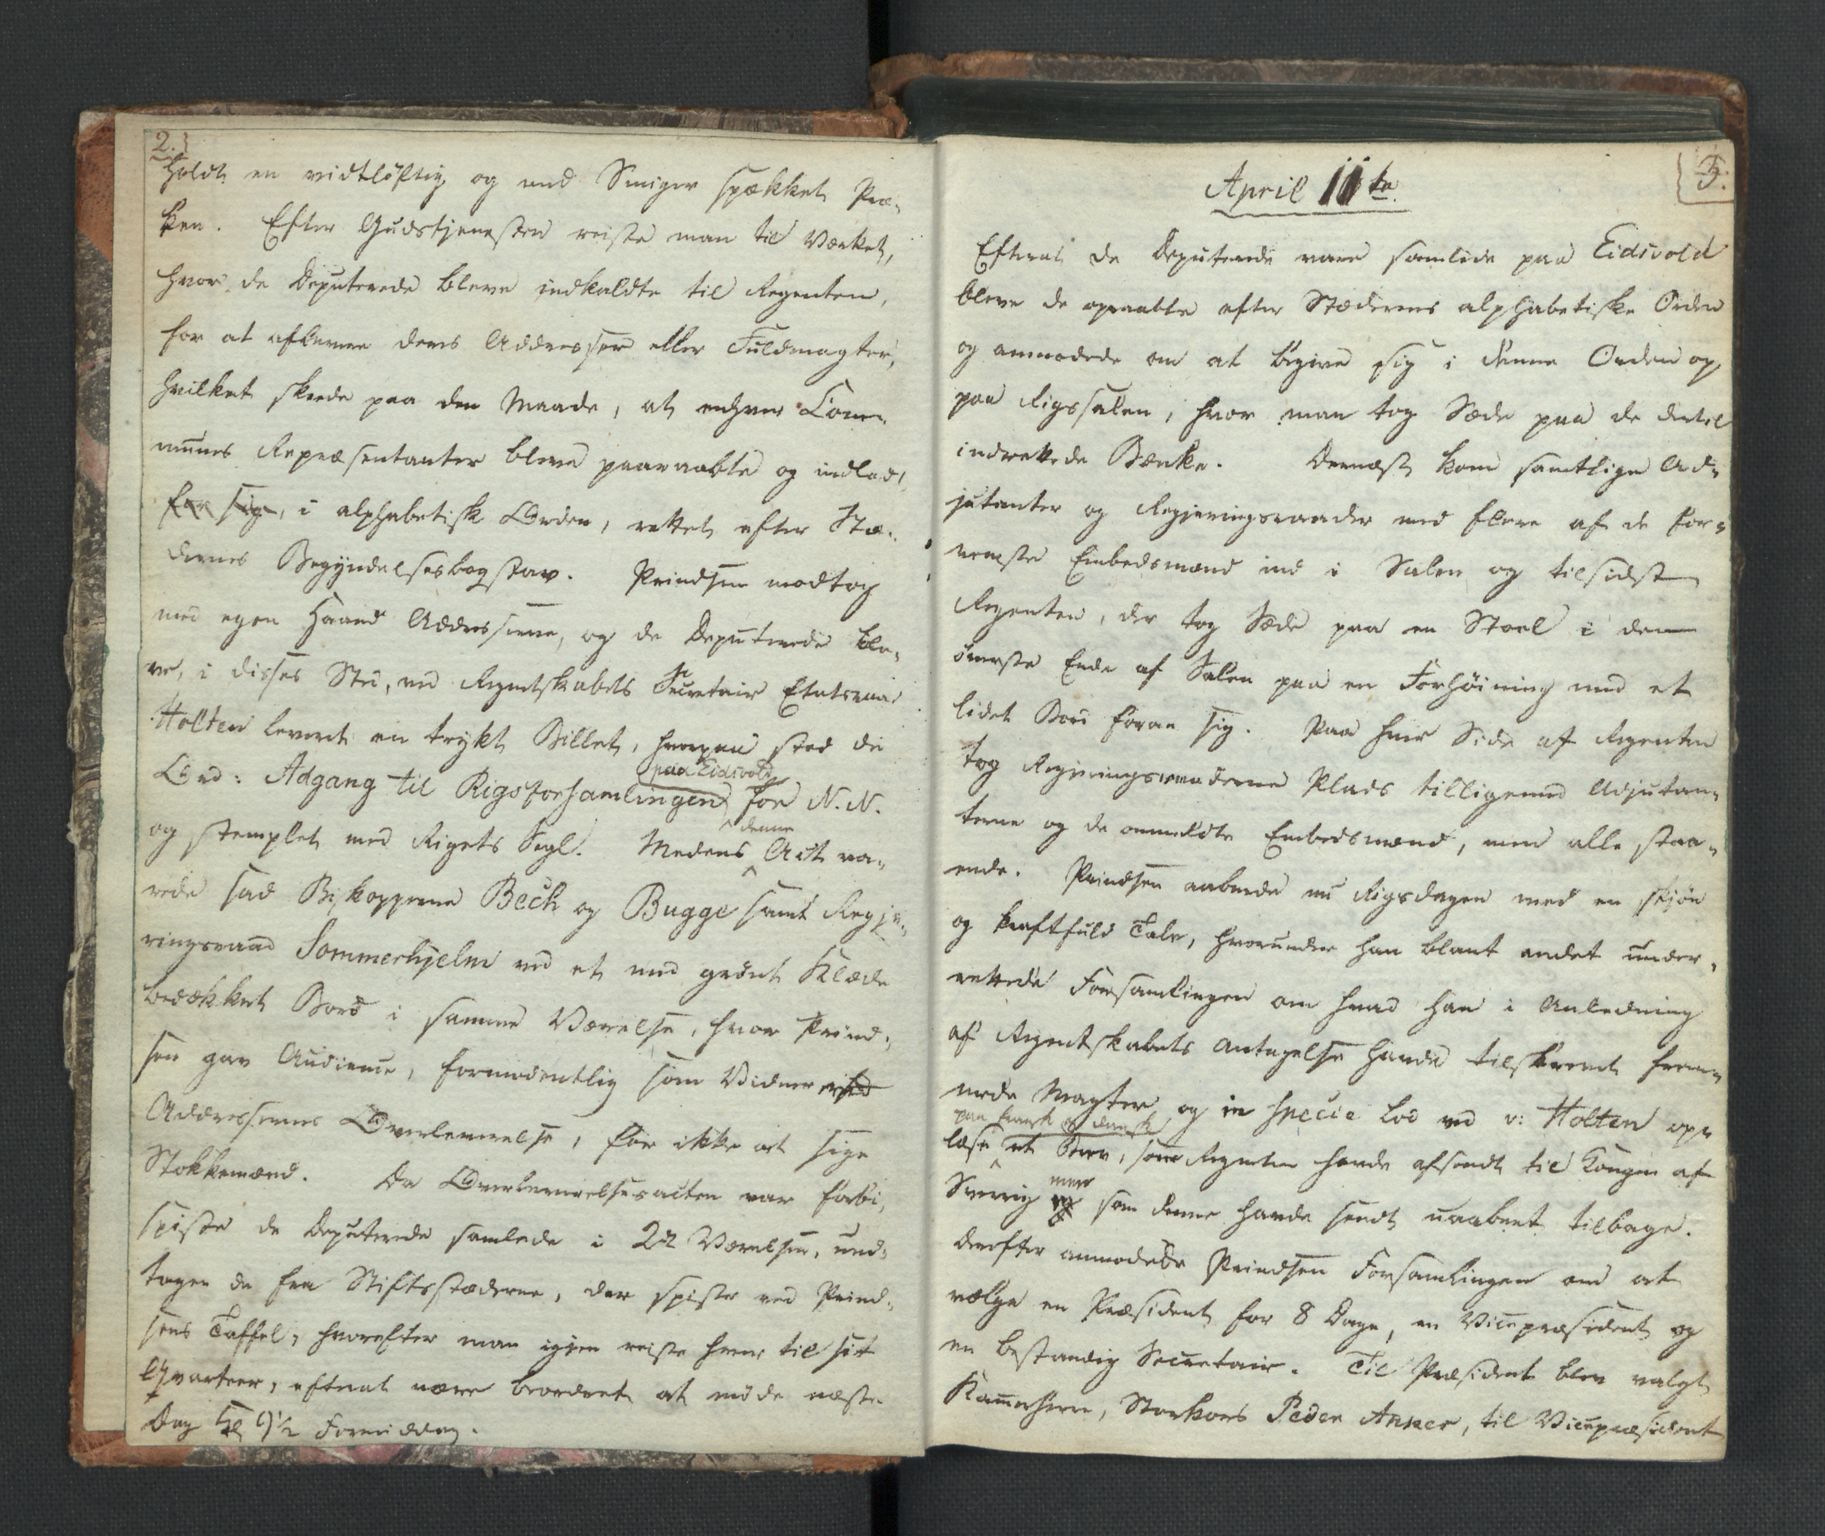 2.)
holdt en vidtløftig og med Smiger spækket Præ-
ken. Efter Gudstjenesten reiste man til Værket,
hvor de Deputerede bleve indkaldte til Regenten,
for at aflevere deres Addresser eller Fuldmagter,
hvilket skeede paa den Maade, at enhver Com-
munes Repræsentanter bleve paaraabte og indladt
for sig, i alphabetisk Orden, rettet efter Stæ-
dernes Begyndelsesbogstav. Prindsen modtog
med egen Haand Addresserne, og de Deputerede ble-
ve, i disses Sted, ved Regentskabets Secretair Etatsraad
Holten leveret en trykt Billet, hvorpaa stod de
Ord: Adgang til Rigsforsamlingen paa Eidsvold for N. N.
og stemplet med Rigets Segl. Medens denne Act va-
rede sad Biskopperne Bech og Bugge samt Regje-
ringsraad Sommerhjelm ved et med grønt Klæde
bedækket Bord i samme Værelse, hvor Prind-
sen gav Audience, formodentlig som Vidner ved
Addressernes Overleverelse, for ikke at sige
Stokkemænd. Da Overleverelsesacten var forbi,
spiste de Deputerede samlede i 2de Værelser, und-
tagen de fra Stiftsstæderne, der spiste ved Prind-
sens Taffel, hvorefter man igjen reiste hver til sit
Qvarteer, efterat være beordret at møde næste
Dag Kl 9½ Formiddag.
3.
April 11te
Efterat de Deputerede vare samlede paa Eidsvold
bleve de opraabte efter Stædernes alphabetiske Orden
og anmodede om at begive sig i denne Orden op
paa Rigssalen, hvor man tog Sæde paa de dertil
indrettede Bænke. Dernæst kom samtlige Ad-
jutanter og Regjeringsraader med flere af de for-
nemste Embedsmænd ind i Salen og tilsidst
Regenten, der tog Sæde paa en Stoel i den
øverste Ende af Salen paa en Forhøining med et
lidet Bord foran sig. Paa hver Side af Regenten
tog Regjeringsraaderne Plads tilligemed Adjutan-
terne og de anmeldte Embedsmænd, men alle staa-
ende. Prindsen aabnede nu Rigsdagen med en skjøn
og kraftfuld Tale, hvorunder han blant andet under-
rettede Forsamlingen om hvad han i Anledning
af Regentskabets Antagelse havde tilskrevet frem-
mede Magter og in specie lod ved v: Holten op-
læse paa fransk og dansk et Brev, som Regenten havde afsendt til Kongen af
Sverrig men som denne havde sendt uaabnet tilbage.
Derefter anmodede Prindsen Forsamlingen om at
vælge en Præsident for 8 Dage, en Vicepræsident og
en bestandig Secretair. Til Præsident blev valgt
Kammerherre, Storkors Peder Anker, til Vicepræsident